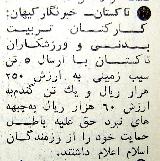 تاکستان - خبرنگار کیهان:
کارکنان تربیت
بدنی و ورزشکاران
تاکستان با ارسال ۵ تن
سیب زمینی به ارزش ۲۵۰
هزار ریال و یک تن گندم به
ارزش ۶۰ هزار ریال به جبهه
های نبرد حق علیه باطل
حمایت خود را از رزمندگان
اسلام اعلام داشتند.